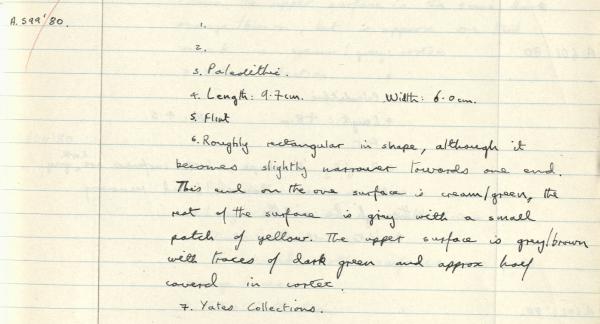 A.599'80.
1.
2.
3. Paleolithic.
4. Length: 9.7cm. Width: 6.0cm.
5. Flint
6. Roughly rectangular in shape, although it
becomes slightly narrower towards one end.
This end on the one surface is cream/green, the
rest of the surface is grey with a small
patch of yellow. The upper surface is grey/brown
with traces of dark green and approx half
coverd in cortex.
7. Yates Collections.